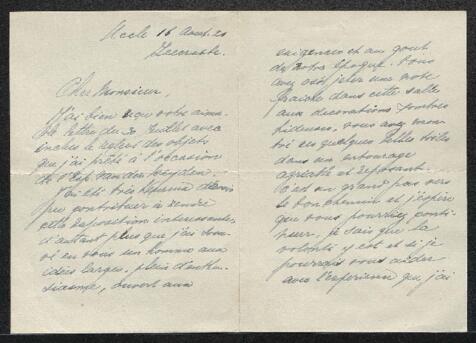 Uccle 16 Aout. 20
Cher Monsieur,
J'ai bien reçu votre aima-
ble lettre du 30 Juillet avec
inclus le relevé des objets
que j'ai prêté à l'occasion
de l'Exp Van der Heyden.
J'ai été très heureux d'avoir
pu contribuer à rendre
cette exposition intéressante
d'autant plus que j'ai trou-
vé en vous un homme aux
idées larges, plein d'enthou-
siasme, ouvert aux
exigences et au gout
de notre époque. Vous
avez osé jeter une note
fraiche dans cette salle
aux decorations
hideuses, vous avez mon-
tré ces quelques belles toiles
dans un entourage
agréable et reposant.
C'est un grand pas vers
le bon chemin et j'espère
que vous pourrez conti-
nuer, je sais que la
volonté y est et si je
pourrais vous aider
avec l'experience que j'ai